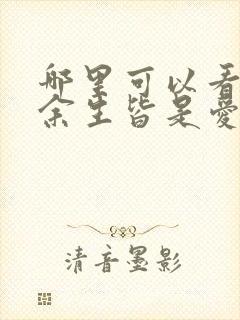 哪里可以看
余生皆是愛
清音墨影